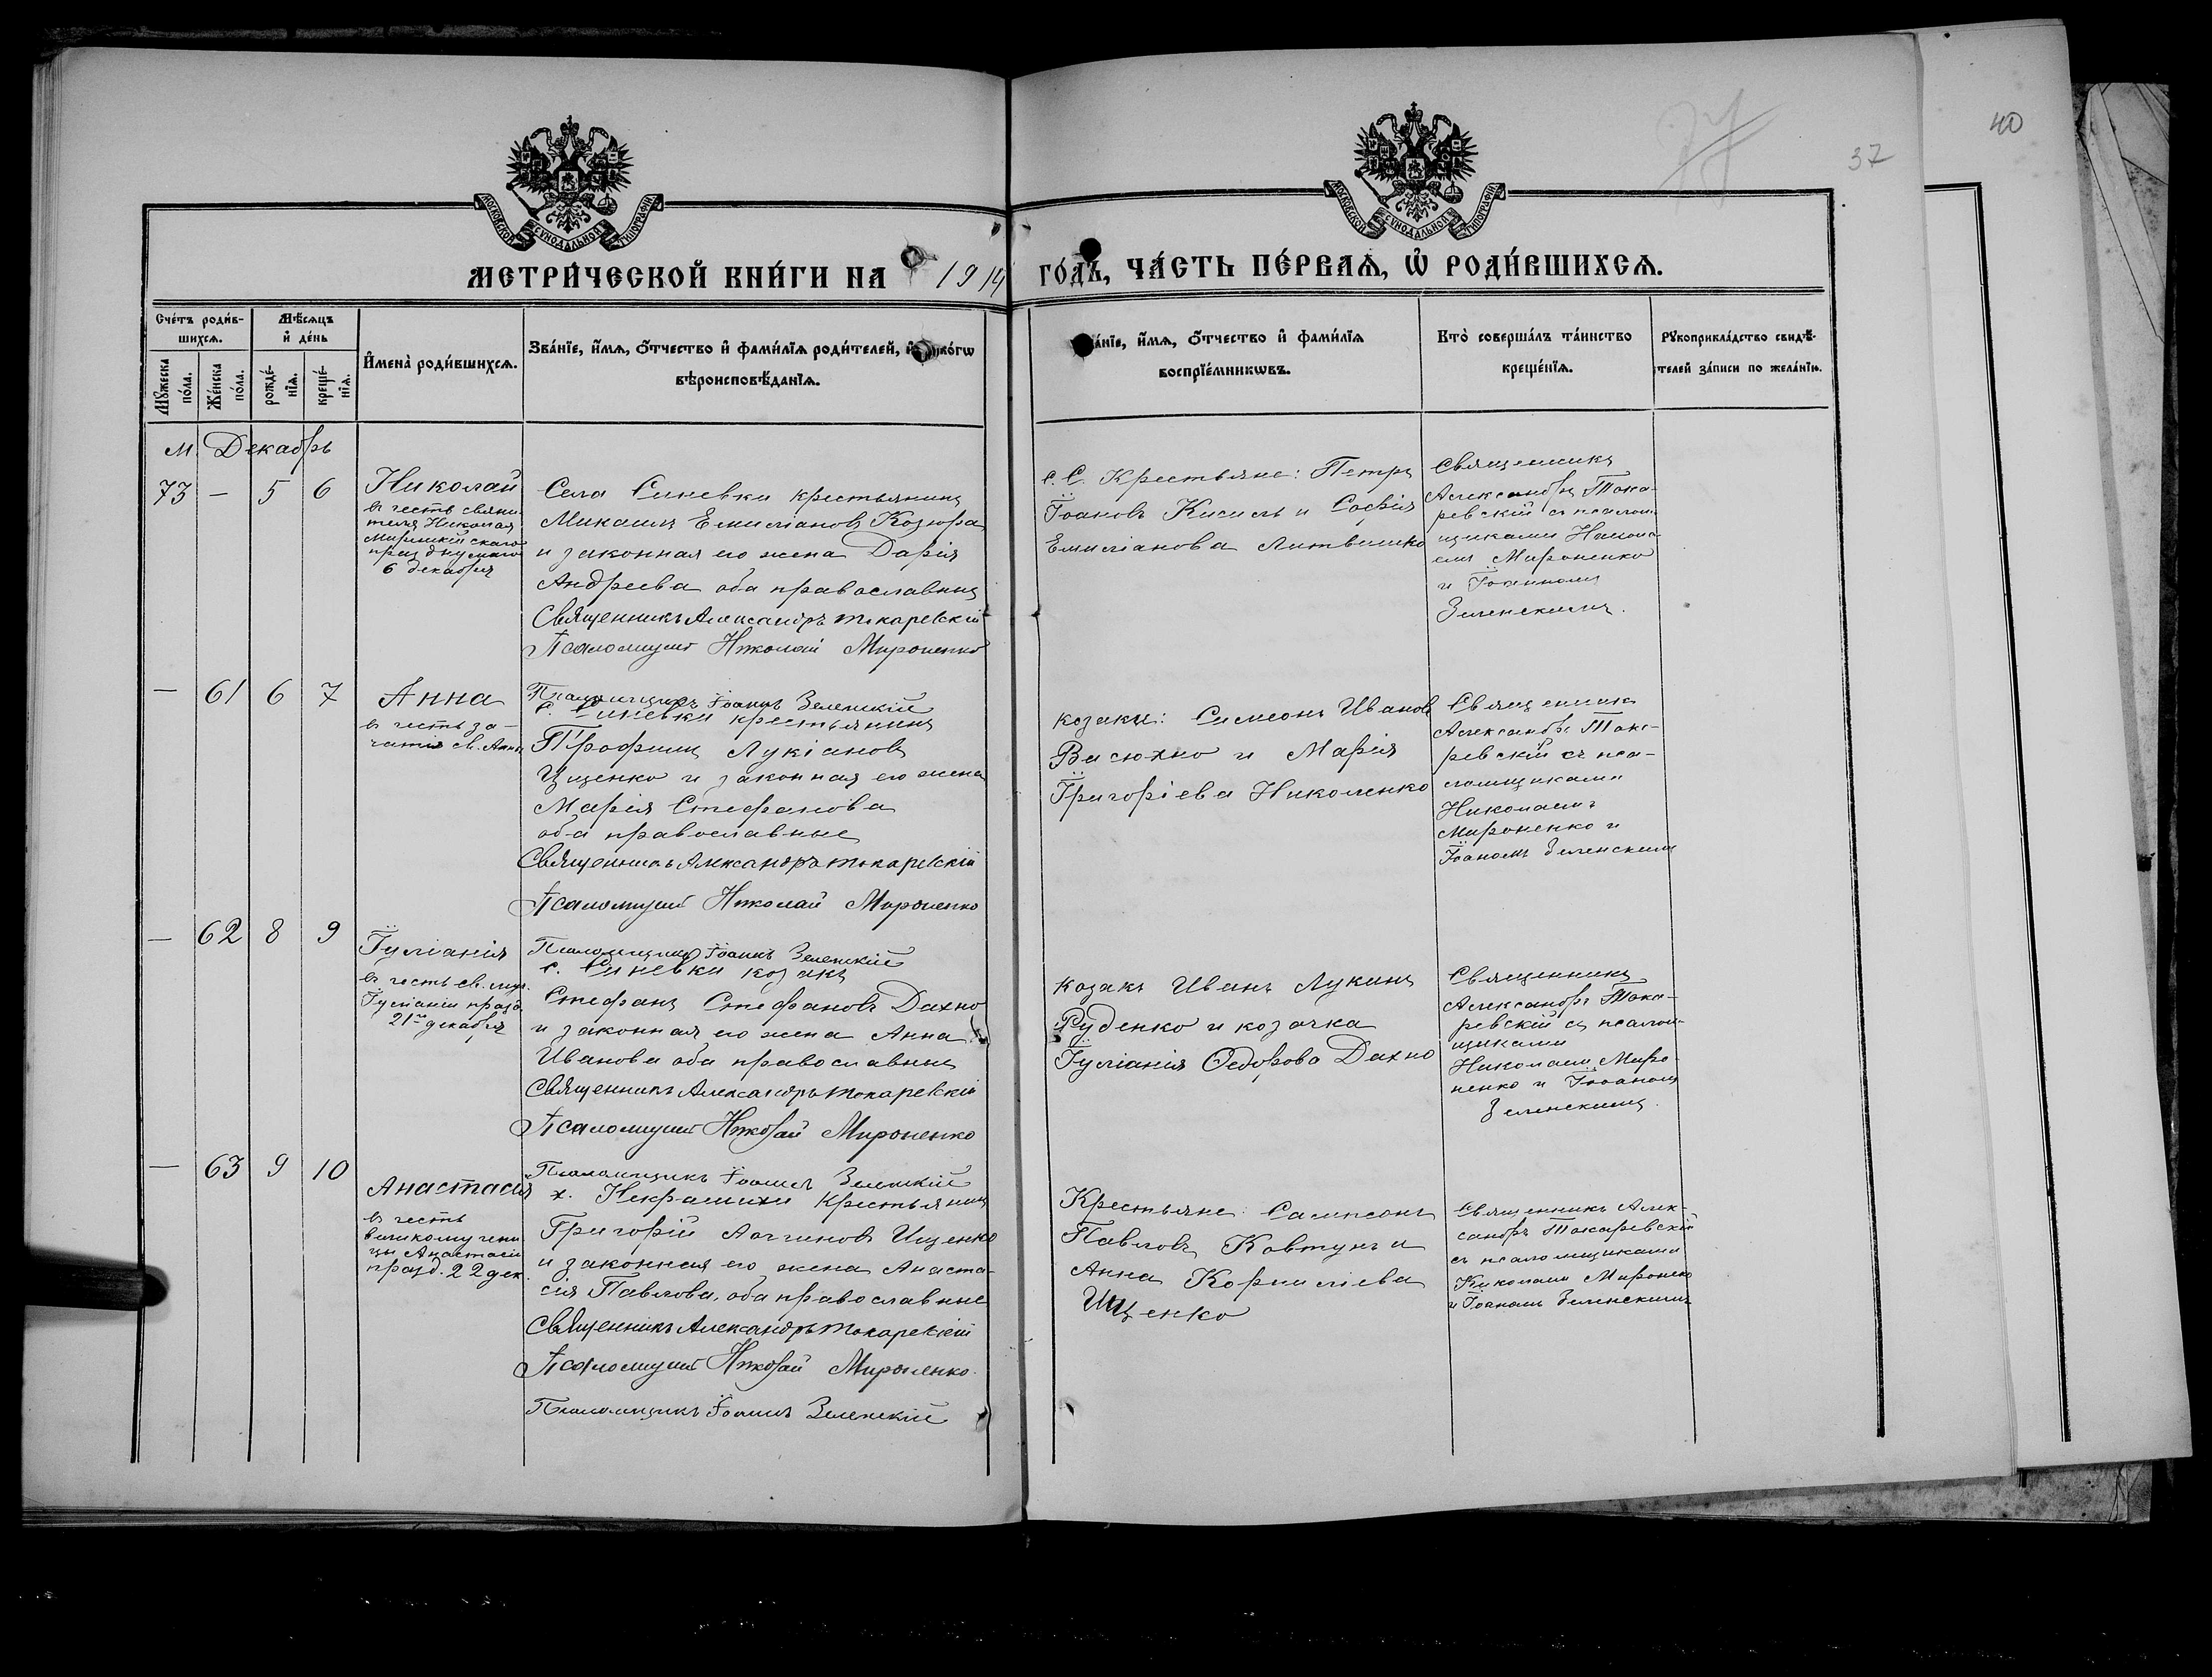 40
37
МОСКОВСКОЙ СѴНОДАЛЬНОЙ ТИПОГРАФІИ
МОСКОВСКОЙ СѴНОДАЛЬНОЙ ТИПОГРАФІИ
МЕТРИ́ЧЕСКОЙ КНИ́ГИ НА 1914 ГО́ДЪ, ЧА́СТЬ ПЕ́РВАѦ, Ѡ҆ РОДИ́ВШИХСѦ.
Сче́тъ роди́в-
шихсѧ.
Мꙋ́жеска по́ла.
Же́нска по́ла.
Мѣ́сѧцъ
и҆ де́нь
рожде́-нїѧ.
креще́-нїѧ.
И҆мена̀ роди́вшихсѧ.
Зва́нїе, и҆́мѧ, ѻ҆́тчество и҆ фамѝлїѧ роди́телей, и҆
вѣроисповѣ́данїѧ.
а́нїе, и҆́мѧ, ѻ҆́тчество и҆ фами́лїѧ
воспрїе́мникѡвъ.
Кто̀ соверша́лъ та́инство
креще́нїѧ.
Рꙋкоприкла́дство свидѣ́-
телей за́писи по жела́нїю.
м. Декабрь
73 — 5 6
Николай
въ честь святи-
теля Николая
Мирликійскаго
празднуемаго
6 декабря
Села Синевки крестьянинъ
Михаилъ Емиліановъ Козюра
и законная его жена Дарія
Андреева оба православны
Священникъ Александръ Токаревскій
Псаломщикъ Николай Мироненко
Псаломщикъ Іоаннъ Зеленскій
с. С. Крестьяне: Петръ
Іоановъ Кисиль и Софія
Емиліанова Литвиненко
Священникъ
Александръ Тока-
ревскій съ псалом-
щиками Никола-
емъ Мироненко
и Іоанномъ
Зеленскимъ.
— 61 6 7
Анна
въ честь за-
чатія св. Анны
с. Синевки крестьянинъ
Трофимъ Лукіановъ
Ищенко и законная его жена
Марія Стефанова
оба православные
Священникъ Александръ Токаревскій
Псаломщикъ Николай Мироненко
Псаломщикъ Іоаннъ Зеленскій
козаки: Симеонъ Ивановъ
Васюхно и Марія
Григоріева Николенко
Священникъ
Александръ Тока-
ревскій съ пса-
ломщиками
Николаемъ
Мироненко и
Іоаномъ Зеленскимъ
— 62 8 9
Іуліанія
въ честь св. муч.
Іуліаніи празд.
21го декабря
с. Синевки козакъ
Стефанъ Стефановъ Дахно
и законная его жена Анна
Иванова оба православны
Священникъ Александръ Токаревскій
Псаломщикъ Николай Мироненко
Псаломщикъ Іоаннъ Зеленскій
козакъ Иванъ Лукинъ
Руденко и козачка
Іуліанія Ѳедорова Дахно
Священникъ
Александръ Тока-
ревскій съ псалом-
щиками
Николаемъ Миро-
ненко и Іоаномъ
Зеленскимъ.
— 63 9 10
Анастасія
въ честь
великомучени-
цы Анастасіи
празд. 22 дек.
х. Некрашихи крестьянинъ
Григорій Логгиновъ Ищенко
и законная его жена Анаста-
сія Павлова, оба православные
Священникъ Александръ Токаревскій
Псаломщикъ Николай Мироненко.
Псаломщикъ Іоаннъ Зеленскій
Крестьяне: Сампсонъ
Павловъ Ковтунъ и
Анна Корниліева
Ищенко
Священникъ Алек-
сандръ Токаревскій
съ псаломщиками
Николаемъ Мироненко
и Іоаномъ Зеленскимъ